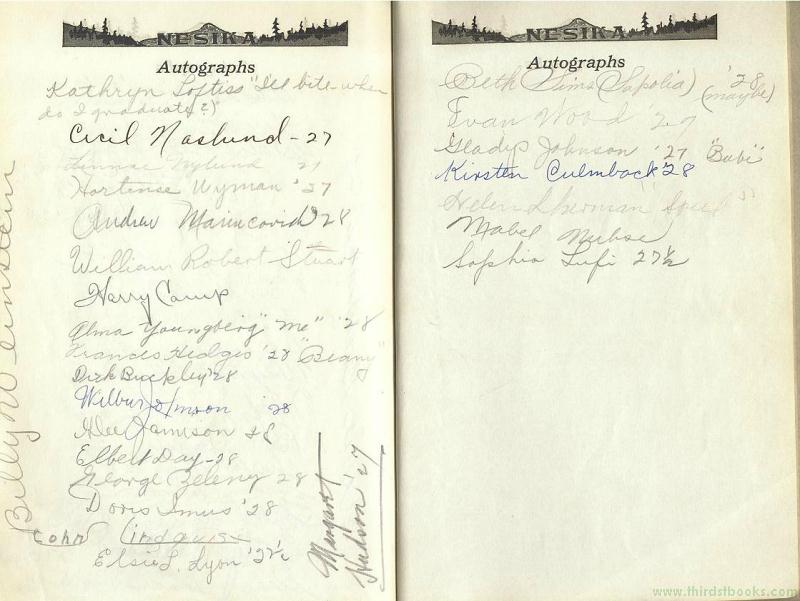 NESIKA
Autographs
Kathryn Loftiss "I'll bite when
do I graduate?)"
Cecil Naslund - 27
Nylund 27
Hortense Wyman '27
Andrew Marincovich '28
William Robert Stuart
Harry Camp
Alma Youngberg "me" '28
Francis Hedges '28 "Beany"
Dick Buckley '28
Wilbur Johnson '28
Alec Jamison 28
Elbert Day - 28
George Zeleny 28
Doris Imus '28
John Lindquist
Elsie L. Lyon '27½
Billy no einstein
Margaret
Hudson '27
NESIKA
Autographs
Beth Sims (Sapolia) '28
(maybe)
Ivan Wood '29
Gladys Johnson '27 "Babi"
Kirsten Culmback '28
Helen Sherman
Mabel
Sophia Lufi 27½
www.thirdstbooks.com